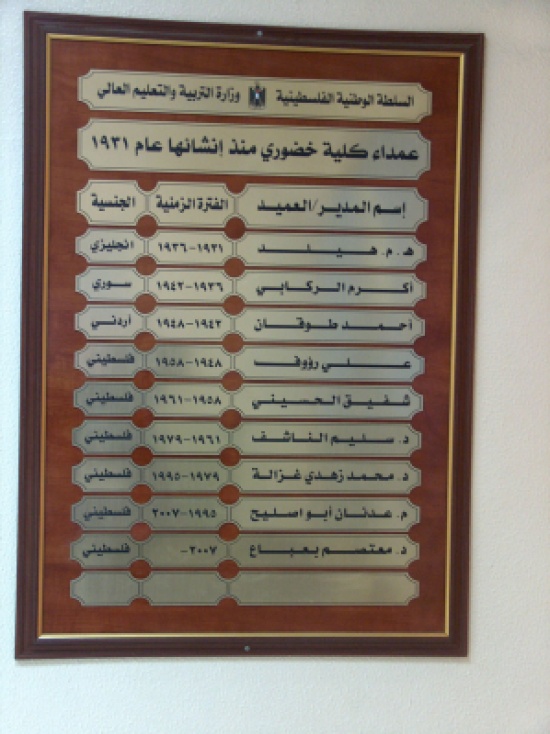 السلطة الوطنية الفلسطينية وزارة التربية والتعليم العالي
عمداء كلية خضوري منذ إنشائها عام ١٩٣١
إسم المدير/العميد الفترة الزمنية الجنسية
هـ . م . هيلد ١٩٣١-١٩٣٦ انجليزي
أكرم الركابي ١٩٣٦-١٩٤٢ سوري
أحمد طوقان ١٩٤٢-١٩٤٨ أردني
علي رؤوف ١٩٤٨-١٩٥٨ فلسطيني
شفيق الحسيني ١٩٥٨-١٩٦١ فلسطيني
د. سليم الناشف ١٩٦١-١٩٧٩ فلسطيني
د. محمد زهدي غزالة ١٩٧٩-١٩٩٥ فلسطيني
م. عدنان أبو اصليح ١٩٩٥-٢٠٠٧ فلسطيني
د. معتصم بعباع ٢٠٠٧- فلسطيني